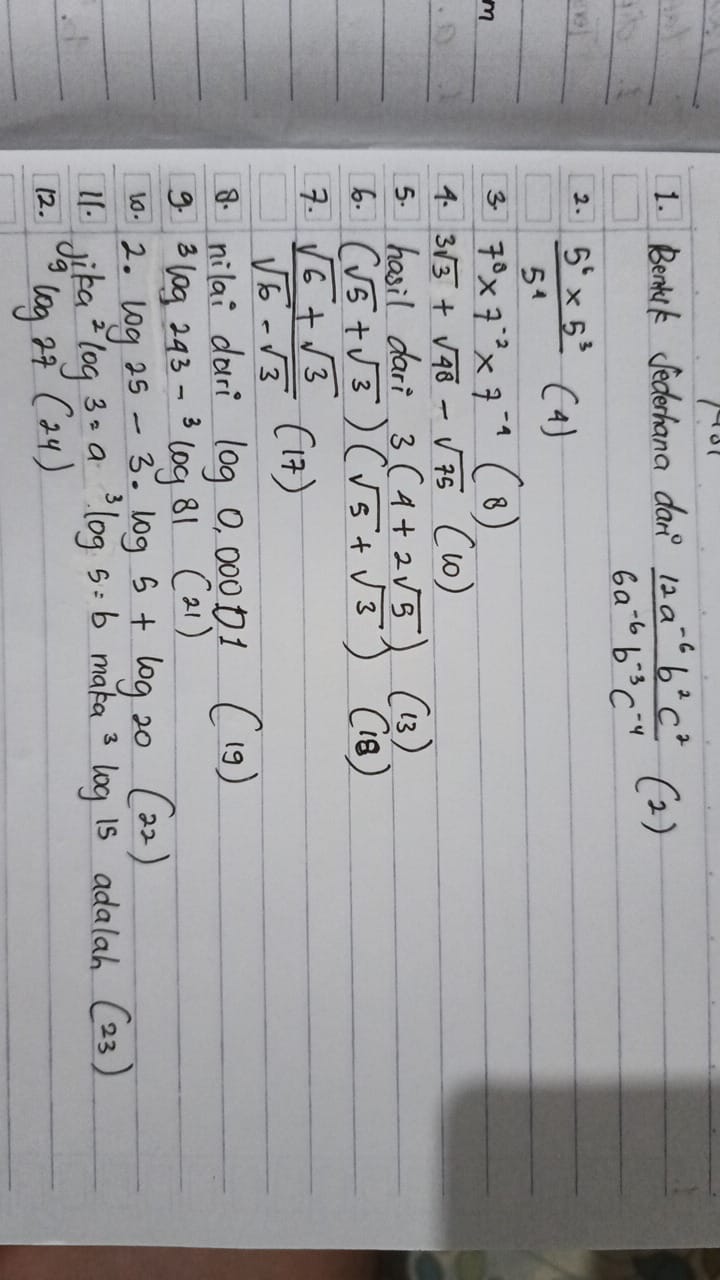 1. Bentuk Sederhana dari 12a⁻⁶ b² c² (2)
6a⁻⁶ b⁻³ c⁻⁴
2. 5⁶ × 5³ (4)
5⁴
3. 7⁸ × 7⁻² × 7⁻⁴ (8)
4. 3√3 + √48 - √75 (10)
5. hasil dari 3 (4 + 2√5) (13)
6. (√5 + √3) (√5 + √3) (18)
7. √6 + √3 (17)
√6 - √3
8. nilai dari log 0,00001 (19)
9. ³log 243 - ³log 81 (21)
10. 2. log 25 - 3. log 5 + log 20 (22)
11. Jika ²log 3 = a ³log 5 = b maka ³log 15 adalah (23)
12. ⁹log 27 (24)